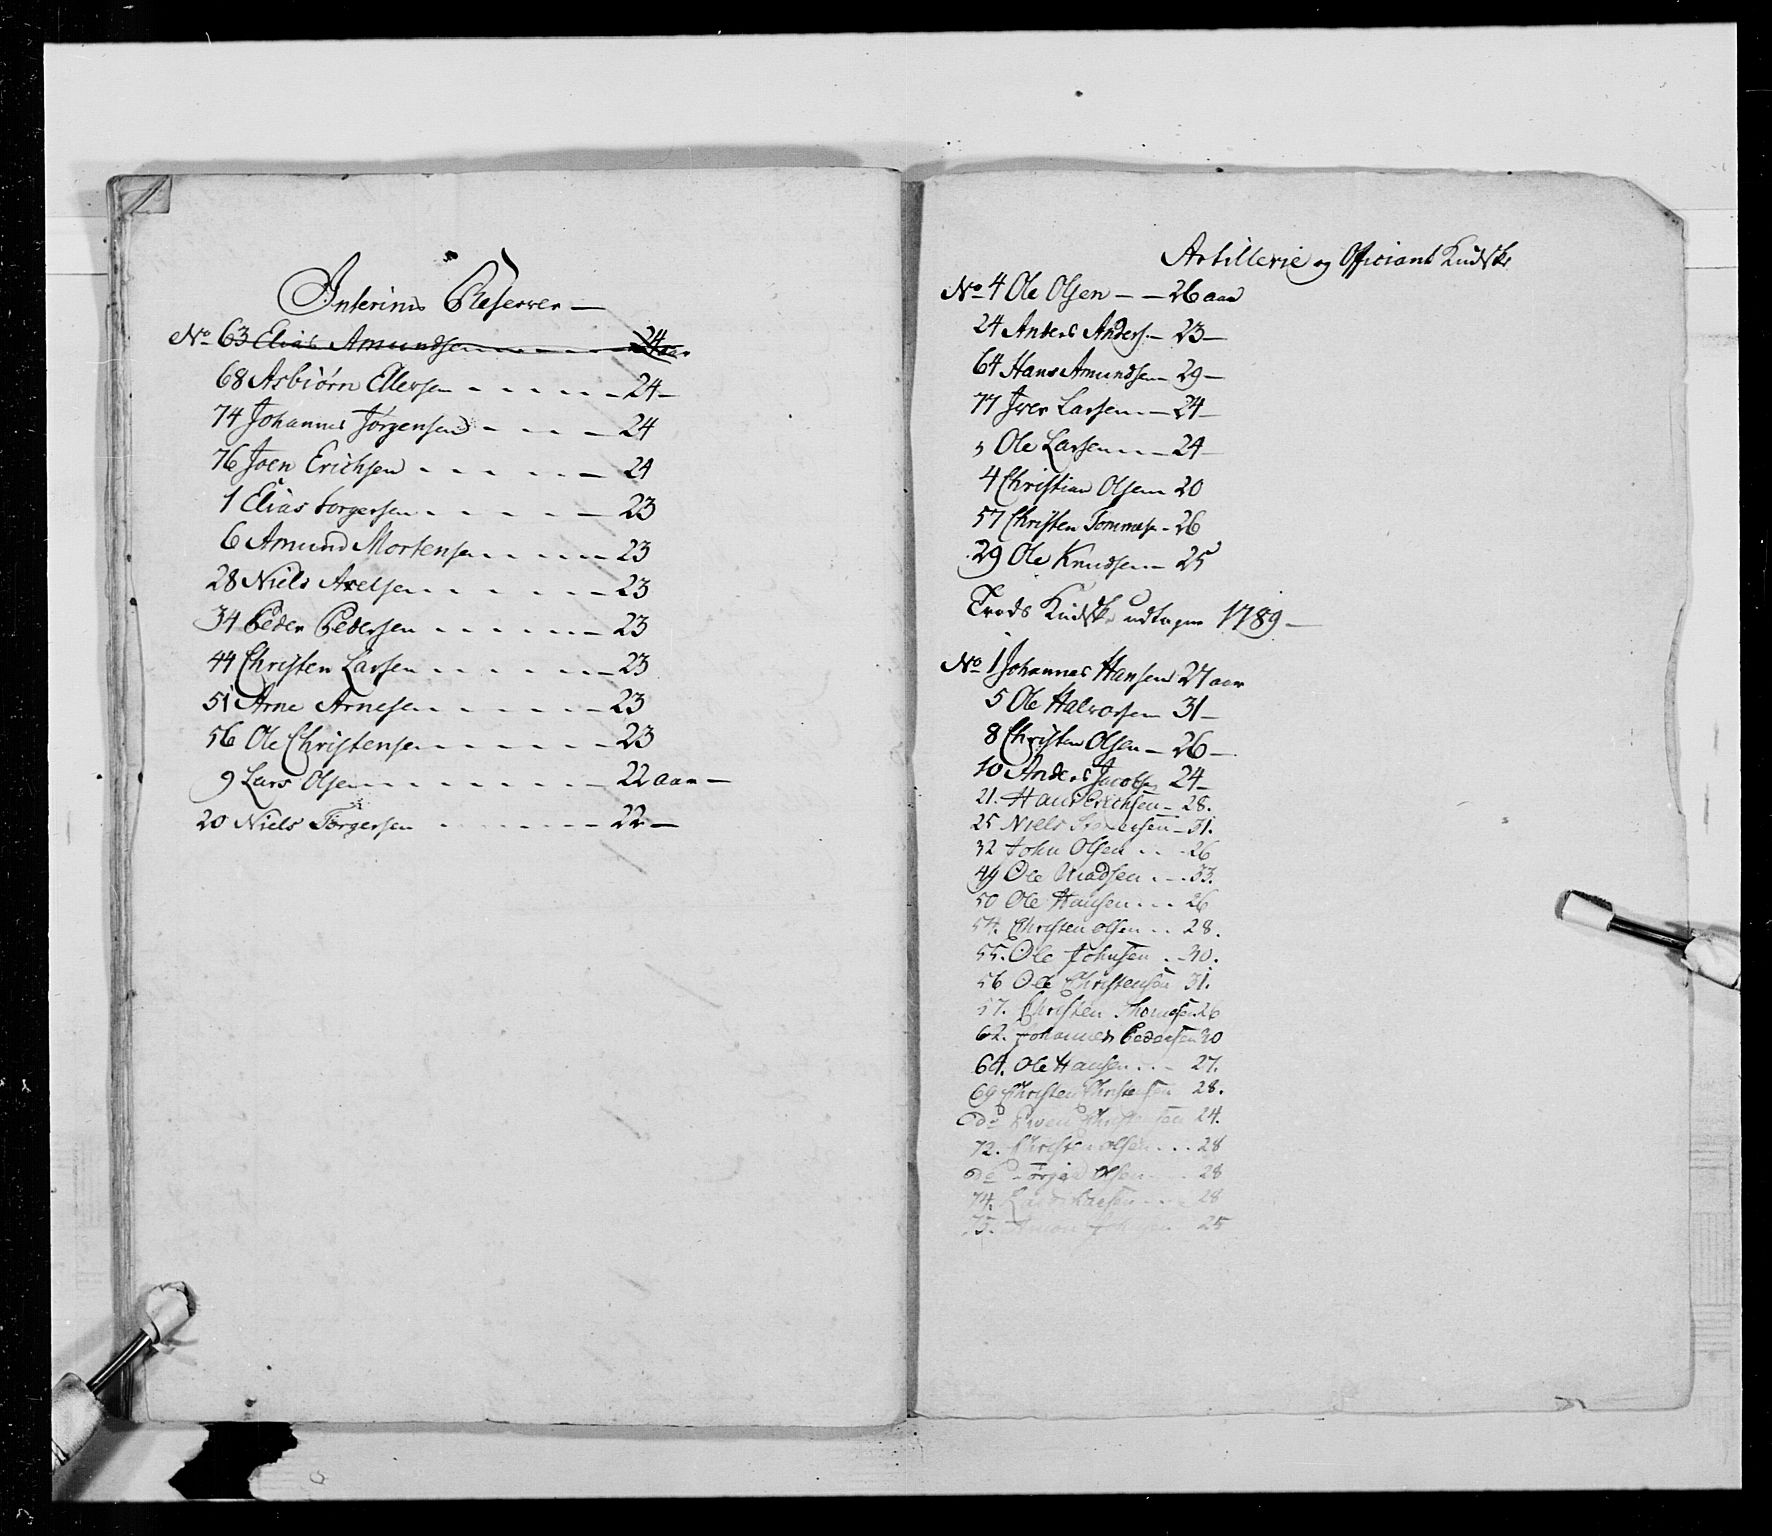 Interims Reserver —
No 63 Elias Amundsen - - - - 24 aar
68 Asbiørn Ellersen - - - - - - 24 —
74 Johannes Jørgensen - - - - 24
76 Joen Erichsen - - - - - - 24
1 Elias torgersen - - - - - - 23
6 Amund Mortensen - - - - - 23
28 Niels Axelsen - - - - - - 23
34 Peder Pedersen - - - - - - 23
44 Christen Larsen - - - - - - 23
51 Arne Arnesen - - - - - - 23
56 Ole Christensen - - - - - - 23
9 Lars Olsen - - - - - - - 22 aar —
20 Niels Torgersen - - - - - - - 22 —
Artillerie og Officiant Kudske
No 4 Ole Olsen - — 26 aar
24 Anders Anders. — 23 —
64 Hans Amundsen — 29 —
77 Iver Larsen - — 24 —
5 Ole Larsen - - — 24 —
4 Christian Olsen 20
57 Christen Tommes - 26
29 Ole Knudsen - 25
Trods Kudske udtagne 1789 —
No 1 Johannes Hansen 27 aar
5 Ole Halvorsen 31 —
8 Christen Olsen — 26 —
10 Anders Jacobsen 24 —
21. Hans Erichsen - 28.
25 Niels - 31.
32 John Olsen . . . 26
49 Ole Madsen . - . 33.
50 Ole Hansen . . . 26
54. Christen olsen . . 28.
55. Ole Johnsen . . 30.
56 Ole Christensen 31.
57. Christen Thomesen 26
62. Johannes Pedersen 30
64. Ole Hansen . . - 27.
69 Christen Christensen 28.
do Christensen 24.
72. Christen olsen . . . 28
do Olsen 28
74. Larsen 28
75. Johnsen 25